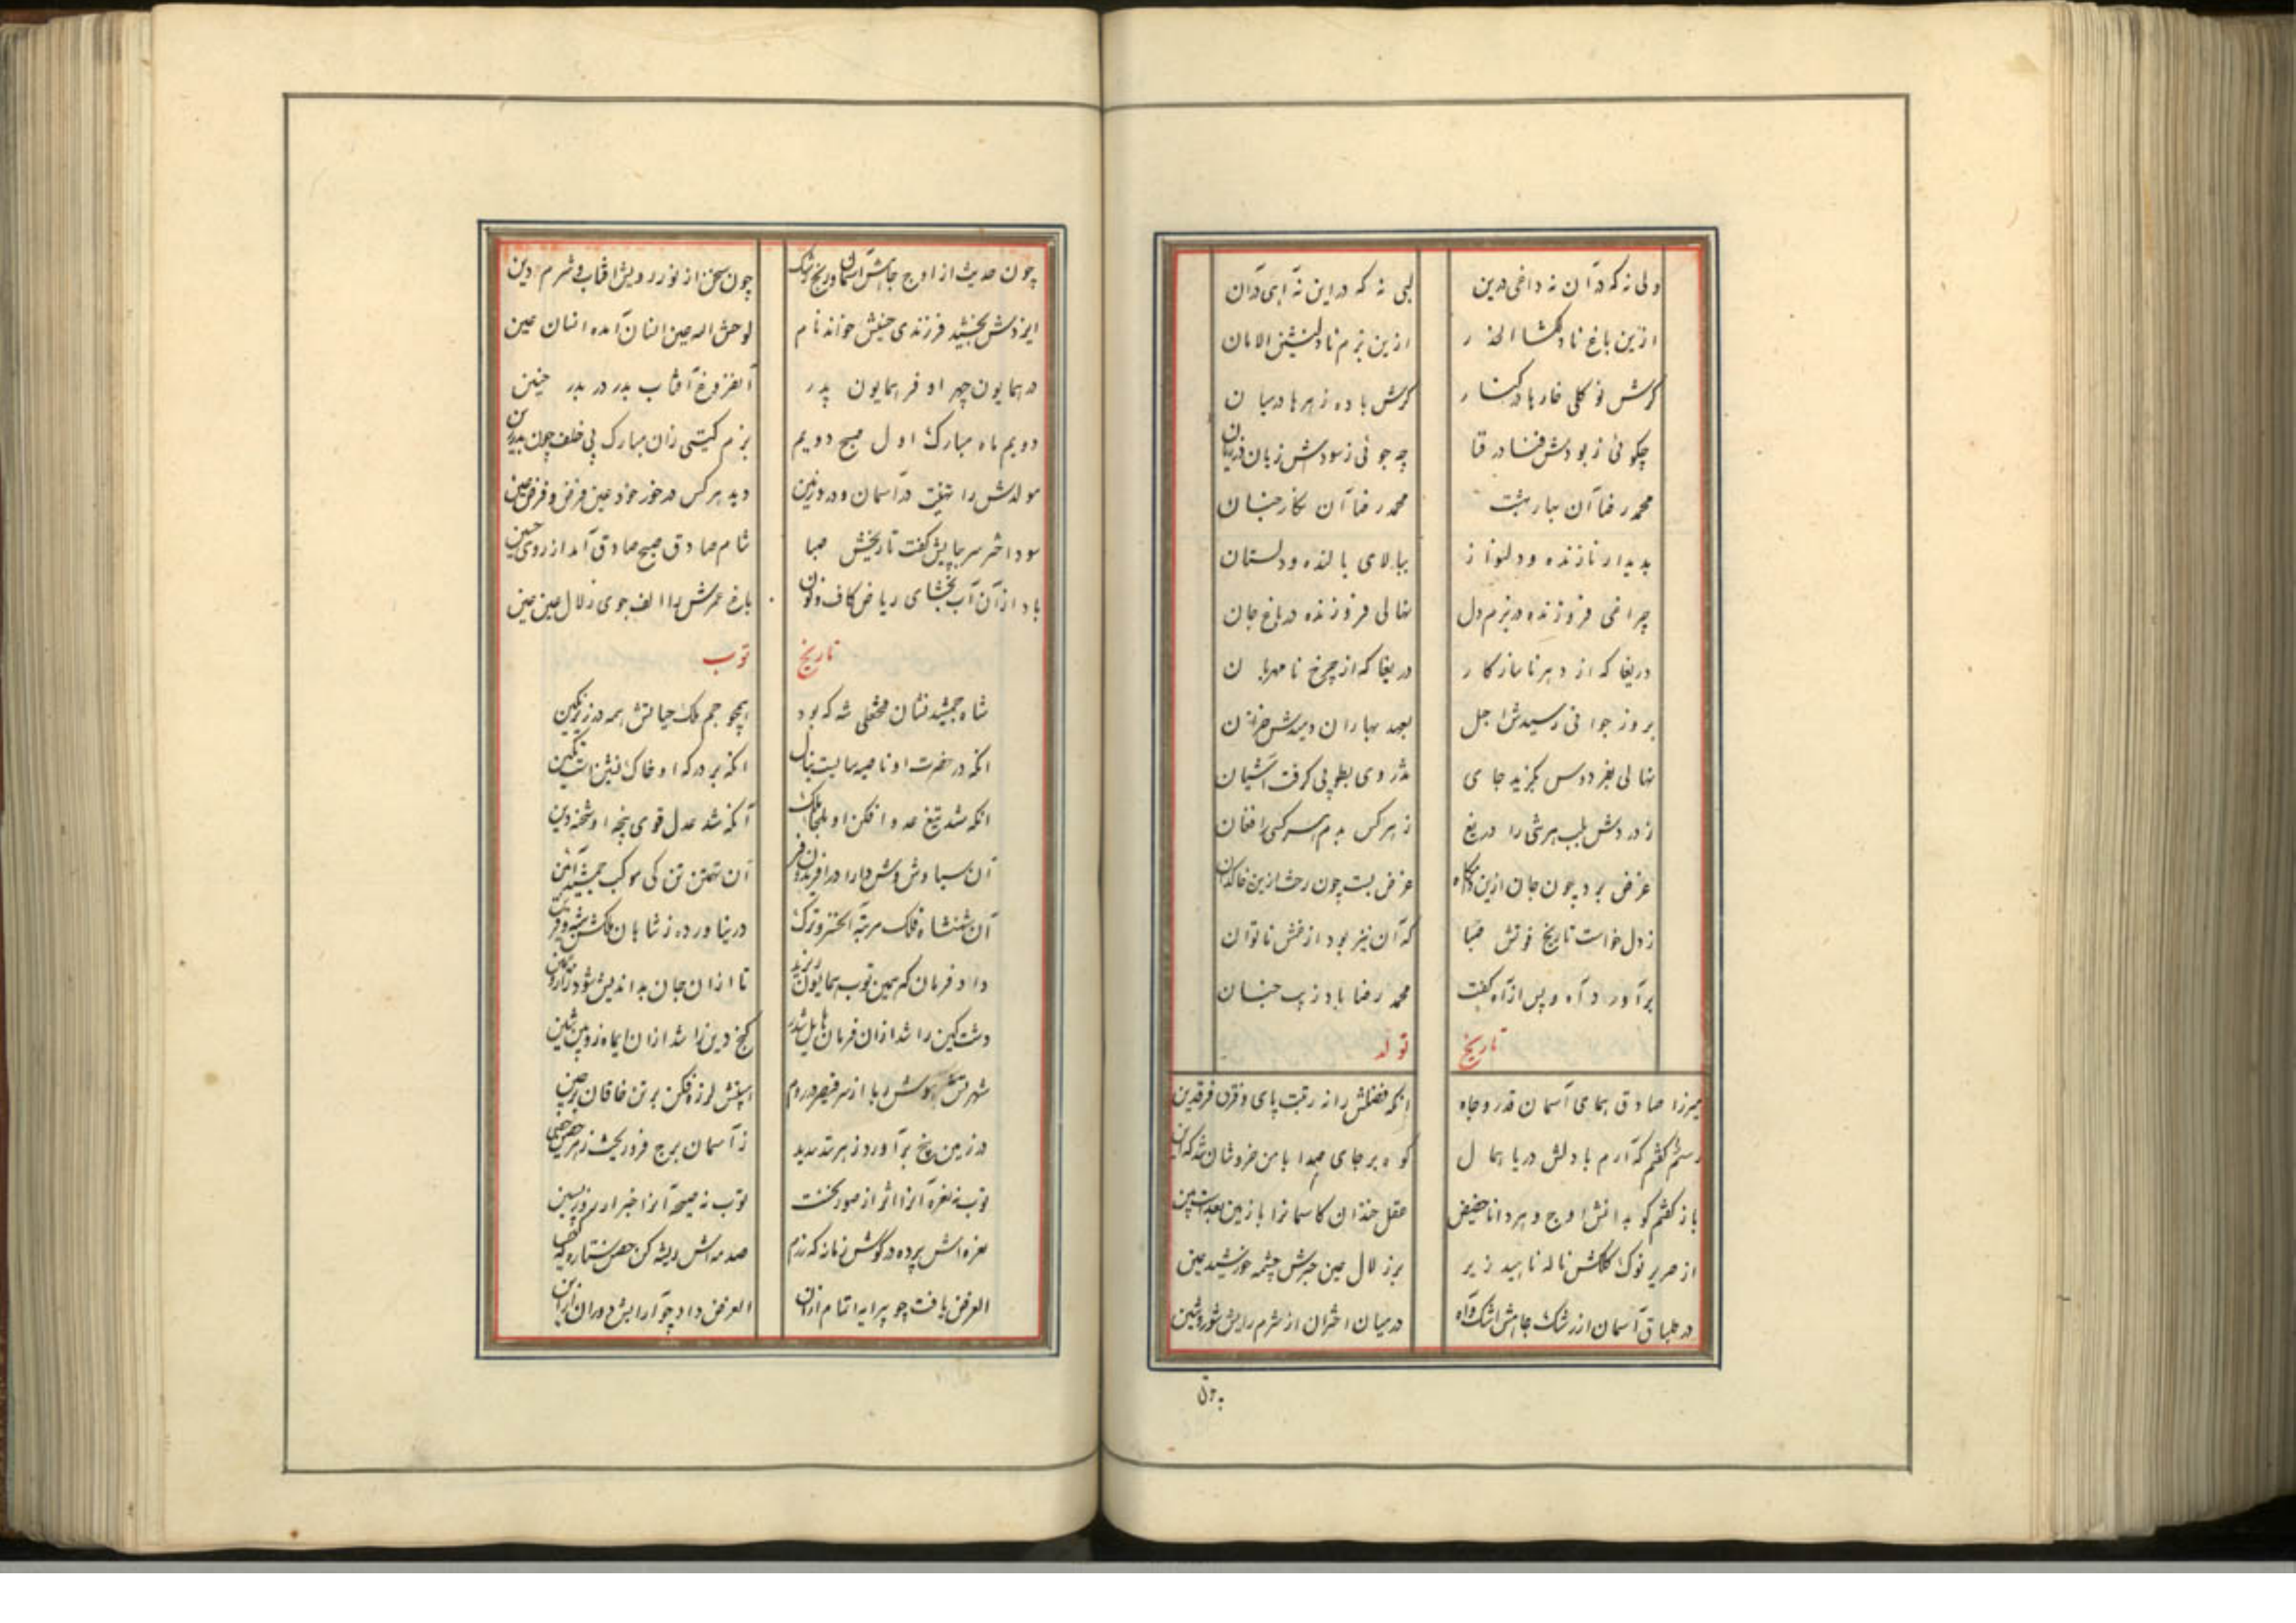 دلی نه که در آن نه داغی درین لبی نه که در این نه آهی در آن
ازین باغ نادلگشا الحذر ازین بزم نادلنشین الامان
گرش نو گلی خارها در کنار گرش باده زهرها در میان
چگوئی ز بودش فنا در قفا چه جوئی ز سودش زیان در زیان
محمد رضا آن بهار بهشت محمد رضا آن نگار جنان
بدیدار نازنده و دلنواز ببالای بالنده و دلستان
چراغی فروزنده در بزم دل نهالی فروزنده در باغ جان
دریغا که از دهر ناسازگار دریغا که از چرخ نامهربان
بروز جوانی رسیدش اجل بعهد بهاران دمیدش خزان
نهالی بفردوس بگزید جای تذروی بطوبی گرفت آشیان
ز دردش بلب هر شی را دریغ ز هر کس بدم هر کسی را فغان
غرض برد چون جان ازین دامگاه غرض بست چون رخت ازین خاکدان
ز دل خواست تاریخ فوتش صبا که آن نیز بود از غمش ناتوان
برآورد آه و پس از آه گفت محمد رضا باد زیب جنان
تاریخ تولد
میرزا صادق همای آسمان قدر و جاه انکه فضلش را نه رتبت پای و فرق فرقدین
گفتم که آرم با دلش دریا همال کوه بر جای صدا با من خروشان شد که این
باز گفتم کو بدانش اوج و هر دانا حضیض عقل خندان کاسمانرا با زمین بعدست بین
از صریر نوک کلکش ناله ناهید زیر بر زلال عین حبرش چشمه خورشید عین
در طباق آسمان از رشک جاهش اشک و آه در میان اختران از شرم رایش شور و شین
چون
چون حدیث از اوج جاهش آسمان در رنج و رشک چون سخن از نور رویش آفتاب و شرم دین
ایزدش بخشید فرزندی حسینش خواند نام لوحش الله عین انسان آمده انسان عین
در همایون چهر او فر همایون پدر آنفزوغ آفتاب بدر در بدر حنین
دویم ماه مبارک اول صبح دویم بزم گیتی زان مبارک پی خلف چون بدر
مولدش را تهنیت در آسمان و در زمین دید هر کس در خور خود عین فرض و فرض عین
سود اختر سر بپایش گفت تاریخش صبا شام صادق صبح صادق آمد از روی حسین
باد از آن آب بخشای ریاض کاف و نون باغ عمرش را الف جوی زلال عین عین
تاریخ توب
شاه جمشید نشان فتحعلی شه که بود همچو جم ملک جهانش همه در زیر نگین
انکه در حضرت او ناصیه سایست انکه بر درگه او خاک نشین است تکین
انکه شد تیغ عدو افکن او ملجا ملک آنکه شد عدل قوی پنجه او شحنه دین
آن سیاوش وش دارا در افریدون فر آن تهمتن تن کی موکب جمشید آئین
آن شهنشاه فلک مرتبه کاختر و ترک در نیاورده ز شاهان ملکش شبه و قرین
داد فرمان که همین توب همایون ریزند تا از ان جان بد اندیش شود زار و حزین
دشت کین را شد از ان فرمان گنج دین را شد از ان ایما
هوش ربا از سر قیصر در روم لرزه فکن بر تن خاقان در چین
در زمین یخ برآورد ز هر ز آسمان برج فرو ریخت ز هر حصن حصین
توب نه نعره آنرا اثر از صور نخست توب نه صیحه آنرا خبر از روز پسین
نعره اش پرده در گوش زمانه که رزم صدمه اش ریشه کن حصن ستاره که کین
الغرض یافت چو پیرایه اتمام ازان الغرض داد چو آرایش دوران این